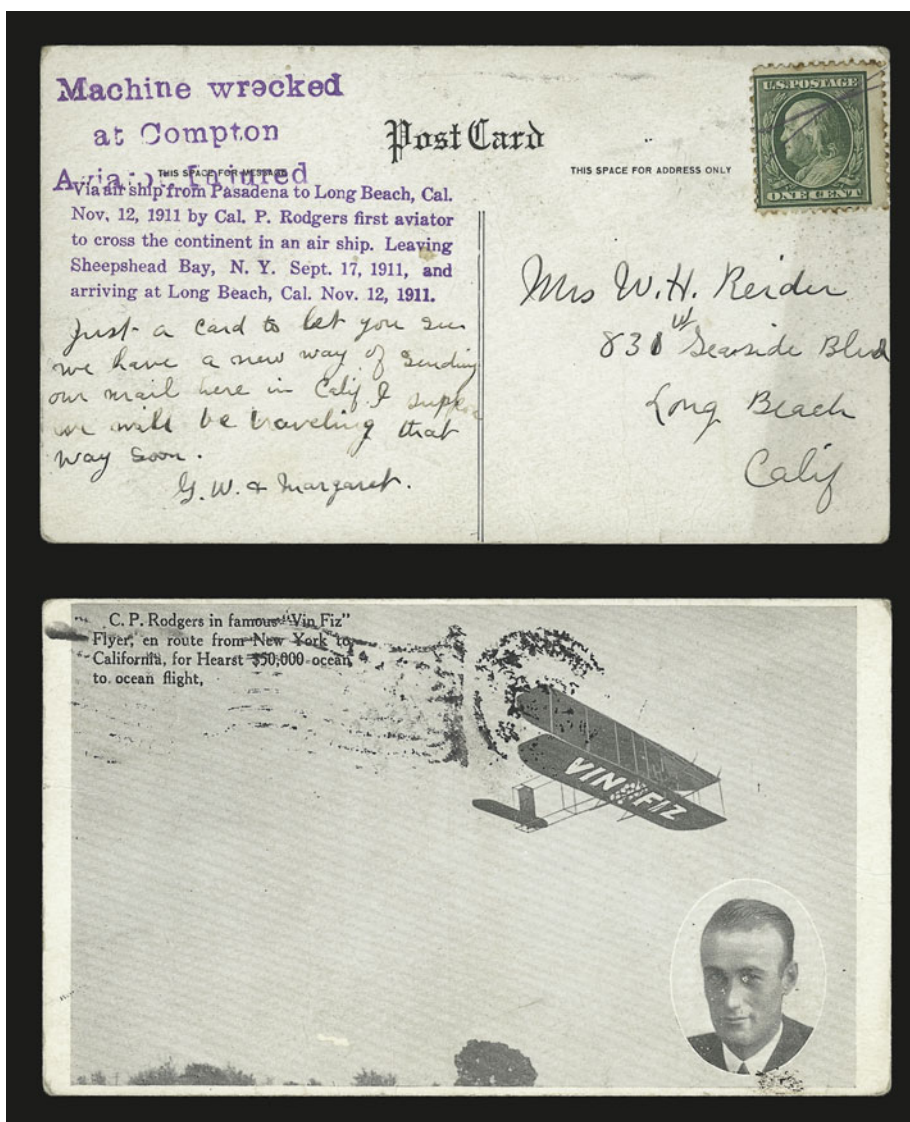 Machine wrecked
at Compton
Aviator injured
Post Card
THIS SPACE FOR MESSAGE
THIS SPACE FOR ADDRESS ONLY
U.S. POSTAGE
ONE CENT
Via air ship from Pasadena to Long Beach, Cal.
Nov. 12, 1911 by Cal. P. Rodgers first aviator
to cross the continent in an air ship. Leaving
Sheepshead Bay, N. Y. Sept. 17, 1911, and
arriving at Long Beach, Cal. Nov. 12, 1911.
Just a card to let you see
we have a new way of sending
our mail here in Calif I suppose
we will be traveling that
way soon.
G. W. & Margaret.
Mrs W. H. Reider
830 W Seaside Blvd
Long Beach
Calif
C. P. Rodgers in famous "Vin Fiz"
Flyer, en route from New York to
California, for Hearst $50,000 ocean
to ocean flight,
VIN FIZ